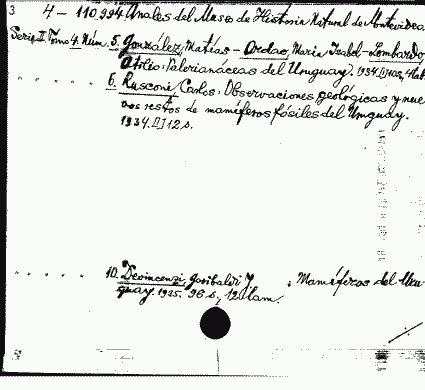 3 4 - 110,994 Anales del Museo de Historia Natural de Montevideo.
Serie II. Tomo 4. Núm. 5. González, Matías - Orolao, María Izabel - Lombardo,
Atilio: Valerianáceas del Uruguay. 1934.
" " " " 6. Rusconi, Carlos: Observaciones geológicas y nue-
vos restos de mamíferos fósiles del Uruguay.
1934. 12 s.
" " " " " 10. Devincenzi, Garibaldi J : Mamíferos del Uru-
guay. 1935. 96 s., 12 lam.